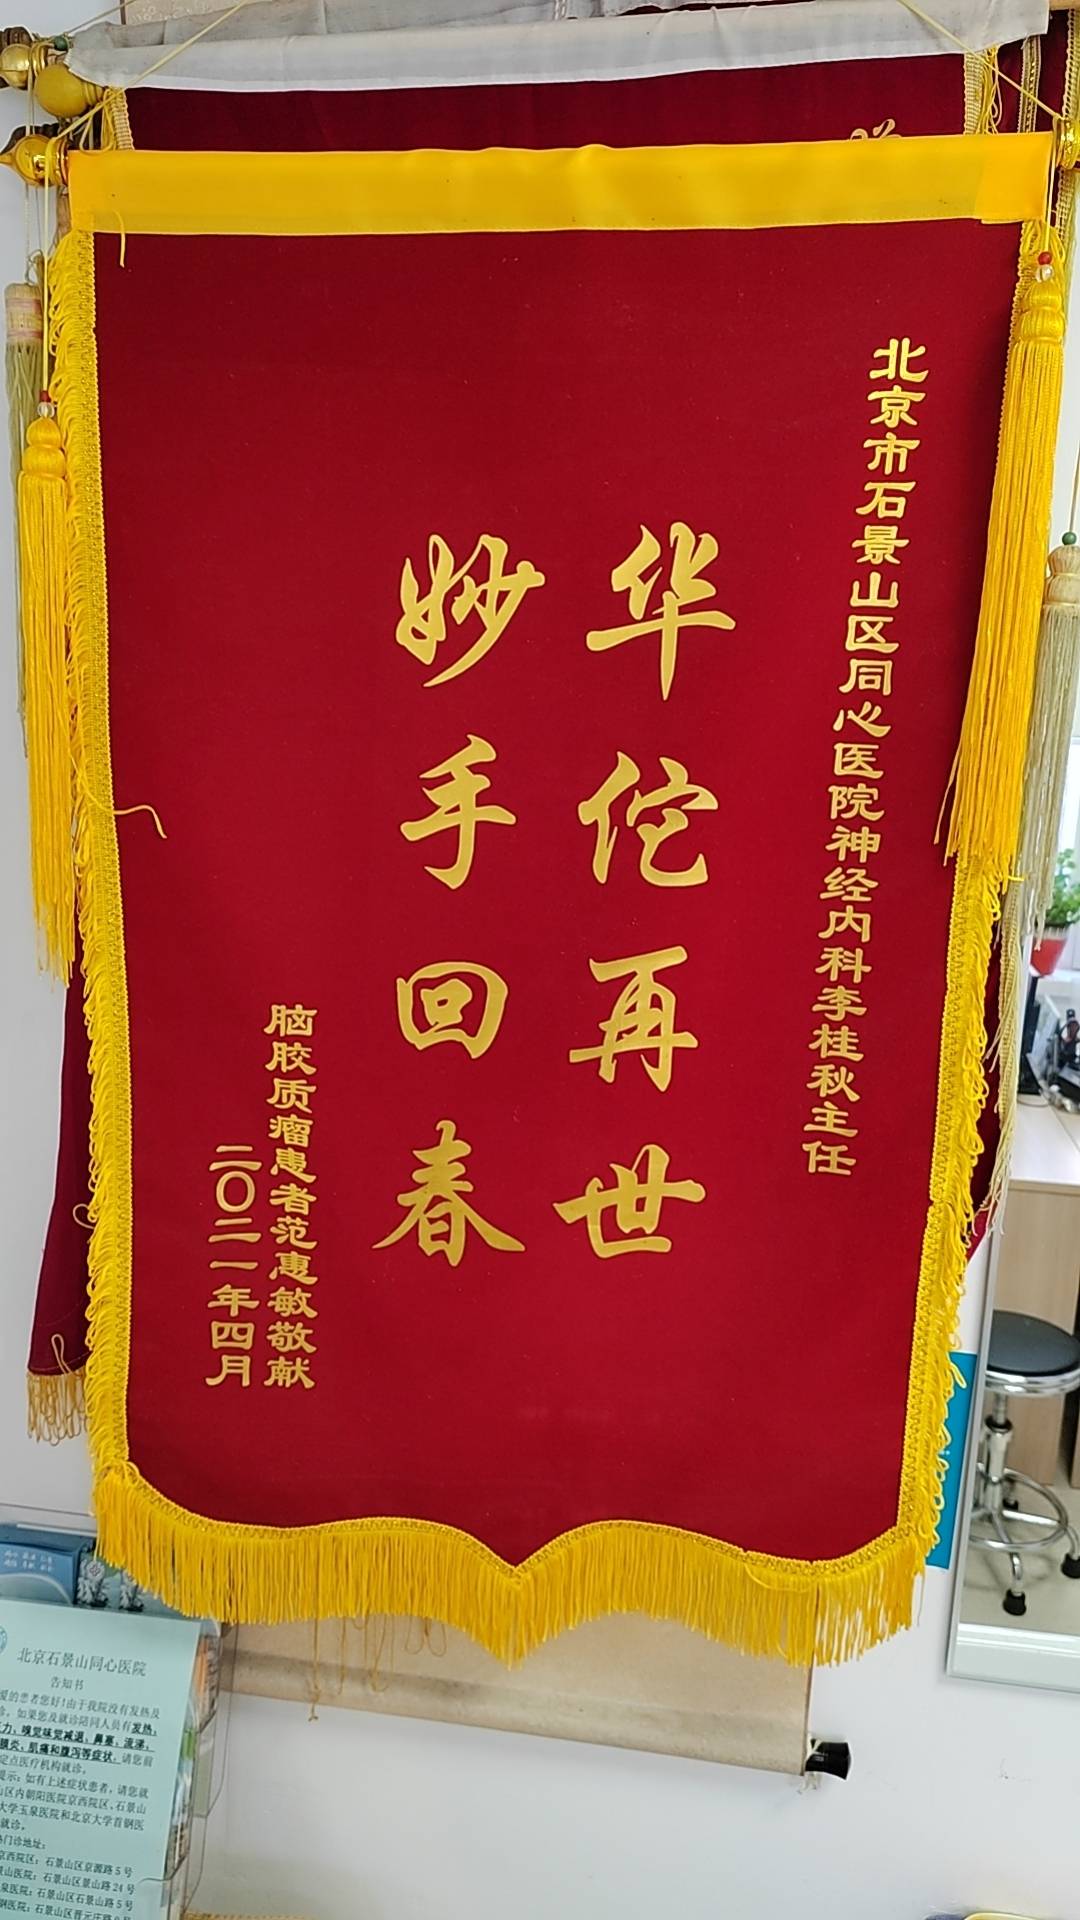 北京市石景山区同心医院神经内科李桂秋主任
华佗再世
妙手回春
脑胶质瘤患者范惠敏敬献
二〇二一年四月
北京石景山同心医院
告知书
爱的患者您好!由于我院没有发热及
诊。如果您及就诊陪同人员有发热,
力,嗅觉味觉减退,鼻塞,流涕,
膜炎,肌痛和腹泻等症状,请您前
定点医疗机构就诊。
提示:如有上述症状患者,请您就
山区内朝阳医院京西院区、石景山
大学玉泉医院和北京大学首钢医
就诊。
门诊地址:
京西院区:石景山区京源路5号
景山医院:石景山区景山路24号
泉医院:石景山区石景山路5号
钢医院:石景山区晋元庄路9号